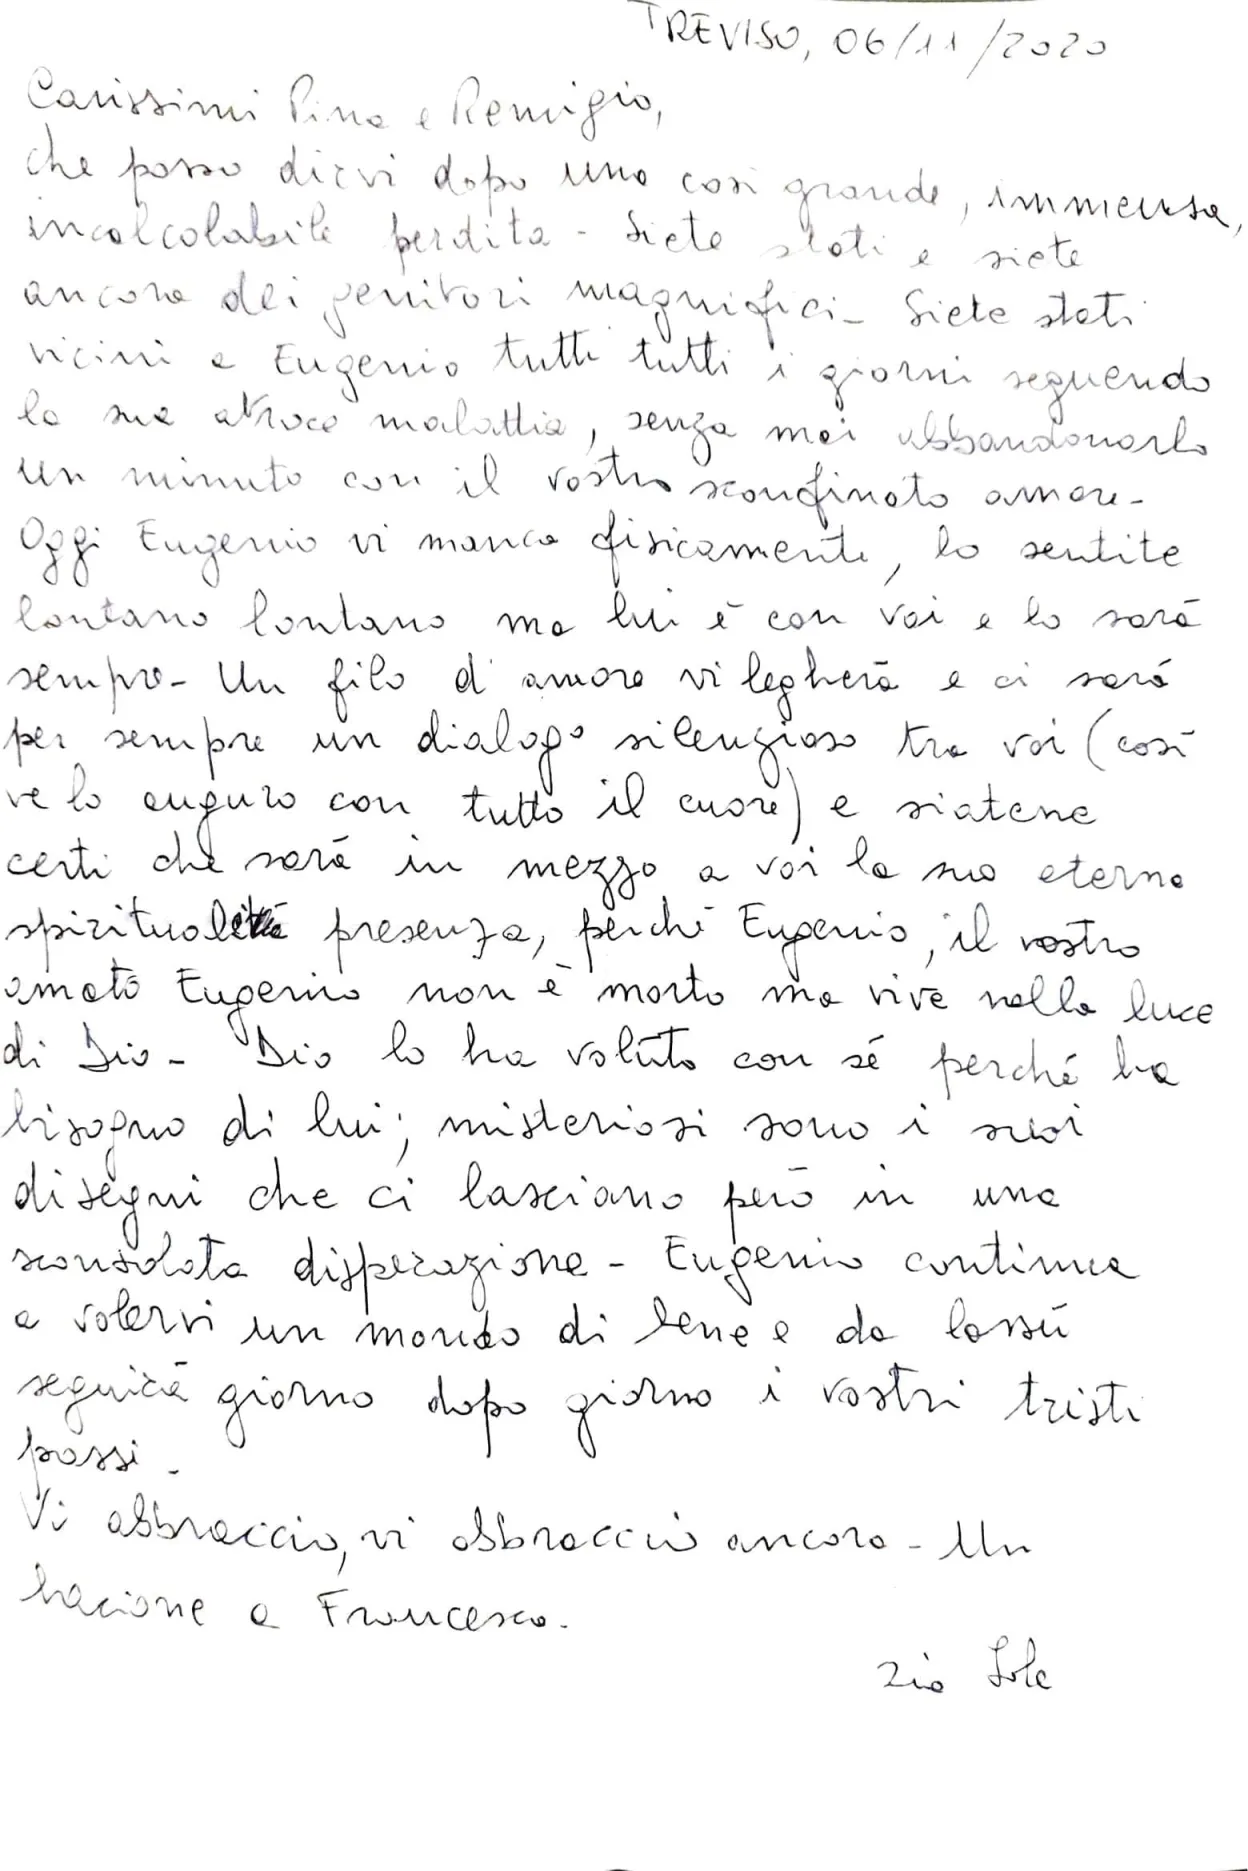 TREVISO, 06/11/2020
Carissimi Pina e Remigio,
che posso dirvi dopo una così grande, immensa,
incalcolabile perdita - Siete stati e siete
ancora dei genitori magnifici - Siete stati
vicini a Eugenio tutti tutti i giorni seguendo
la sua atroce malattia, senza mai abbandonarlo
un minuto con il vostro sconfinato amore -
Oggi Eugenio vi manca fisicamente, lo sentite
lontano lontano ma lui è con voi e lo sarà
sempre - Un filo d'amore vi legherà e ci sarà
per sempre un dialogo silenzioso tra voi (così
ve lo auguro con tutto il cuore) e siatene
certi che sarà in mezzo a voi la sua eterna
spirituale presenza, perché Eugenio, il vostro
amato Eugenio non è morto ma vive nella luce
di Dio - Dio lo ha voluto con sé perché ha
bisogno di lui; misteriosi sono i suoi
disegni che ci lasciano però in una
sconsolata disperazione - Eugenio continua
a volervi un mondo di bene e da lassù
seguirà giorno dopo giorno i vostri tristi
passi -
Vi abbraccio, vi abbraccio ancora - Un
bacione a Francesco.
zia